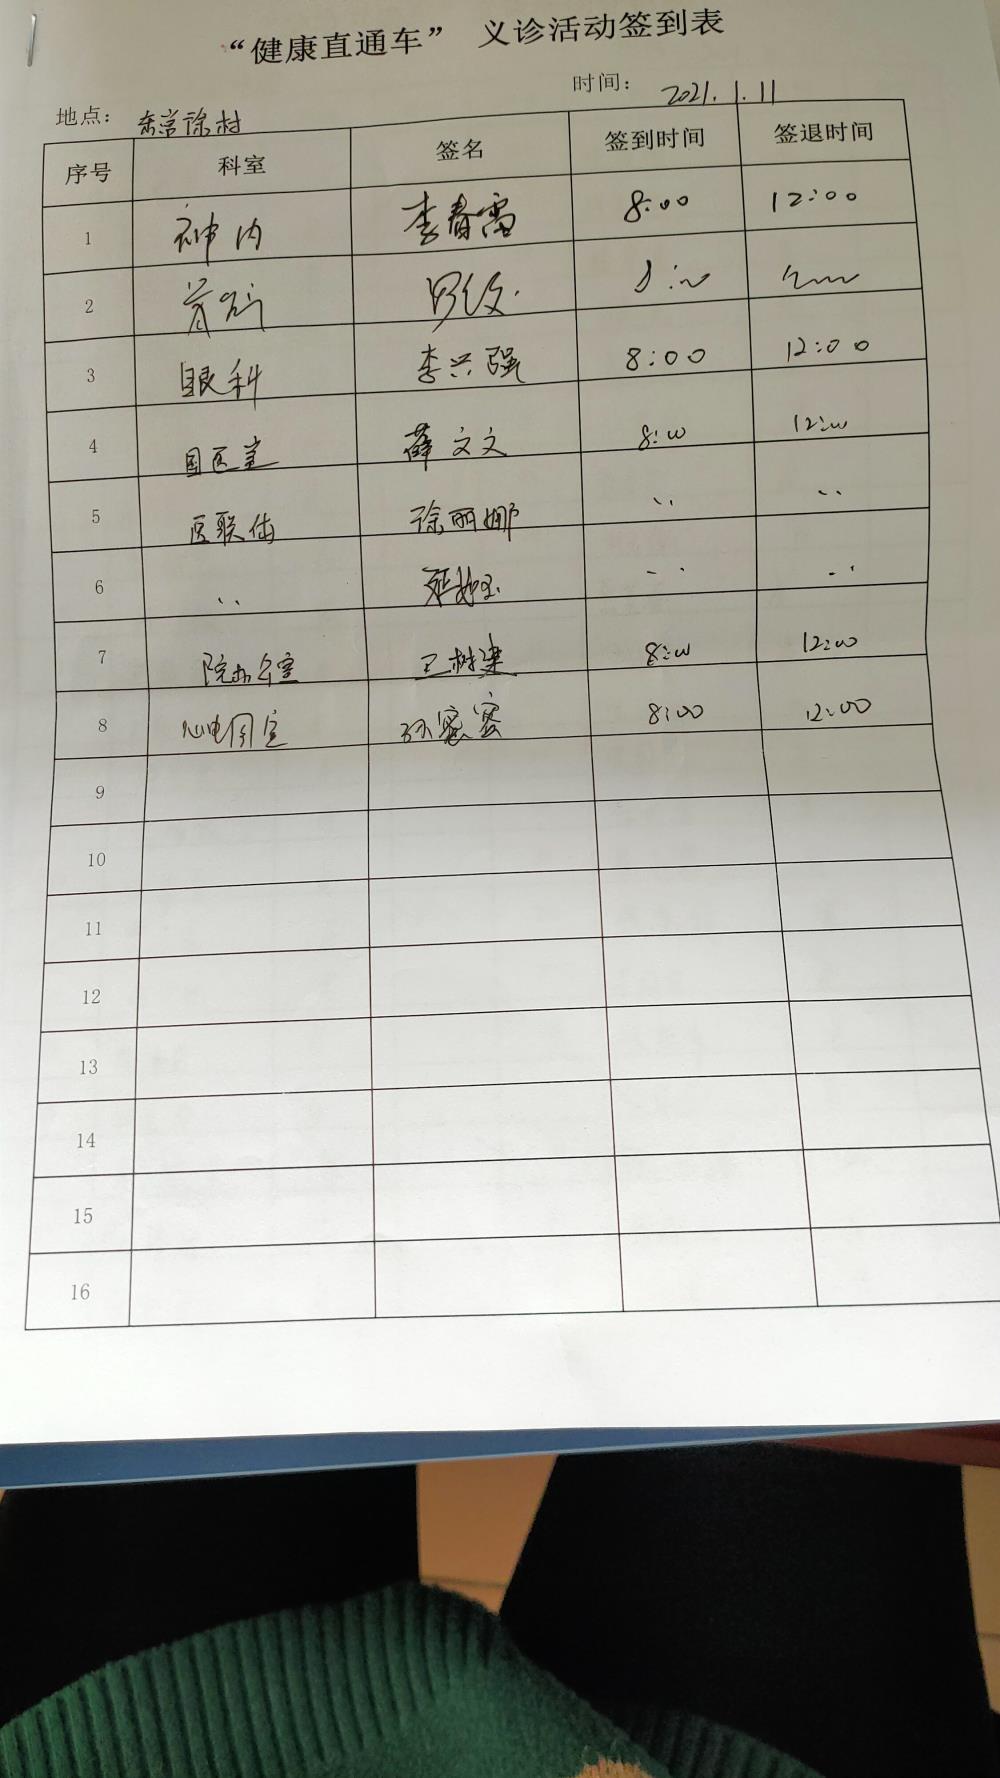 “健康直通车” 义诊活动签到表
地点： 东营徐村 时间： 2021.1.11
序号 科室 签名 签到时间 签退时间
1 神内 李春雷 8:00 12:00
2 骨科
3 眼科 李兴强 8:00 12:00
4 国医堂 薛文文 8:00 12:00
5 医联体 徐丽娜 〃 〃
6 〃 〃 〃
7 院办公室 王树建 8:00 12:00
8 心电图室 孙蜜蜜 8:00 12:00
9
10
11
12
13
14
15
16